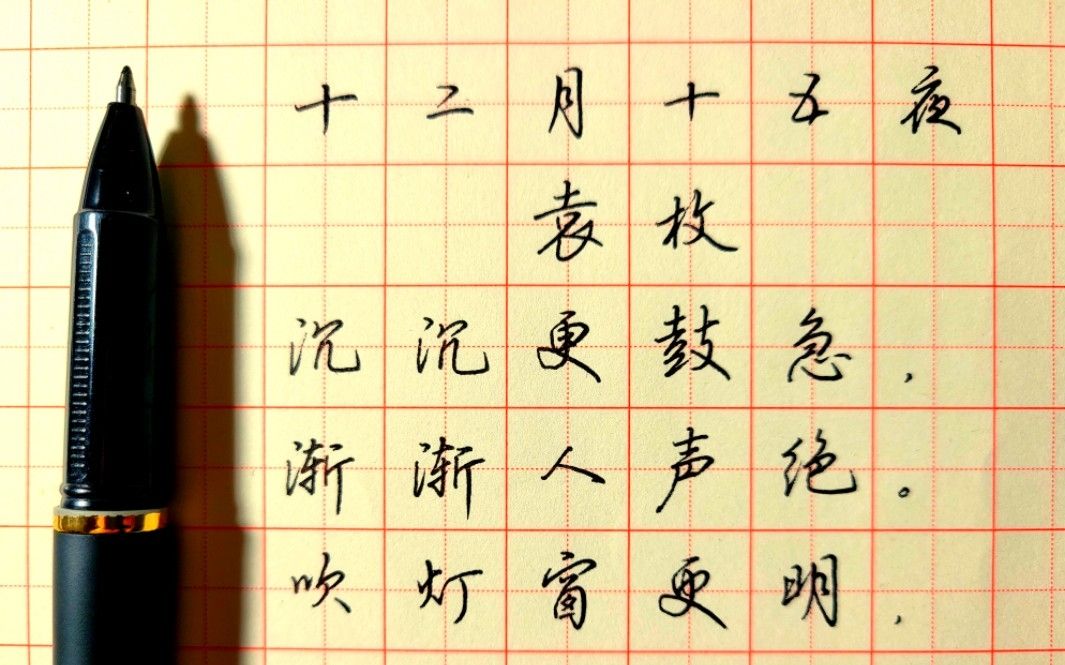 十二月十五夜
袁枚
沉沉更鼓急,
渐渐人声绝。
吹灯窗更明,